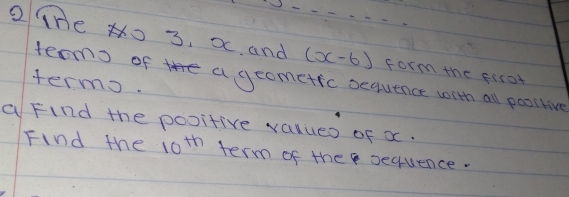 2 The No 3, x. and (x-6) form the first
terms of the a geometric sequence with all positive
terms.
a Find the positive values of x.
Find the 10th term of the sequence.